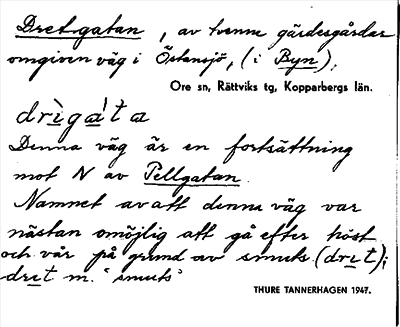 Dretgatan, av tvenne gärdesgårdar
omgiven väg i Östansjö, (i Byn),
Ore sn, Rättviks tg, Kopparbergs län.
drìga`ta
Denna väg är en fortsättning
mot N av Pellgatan.
Namnet av att denna väg var
nästan omöjlig att gå efter höst
och vår på grund av smuts (drɩt);
drɩt m. "smuts"
THURE TANNERHAGEN 1947.